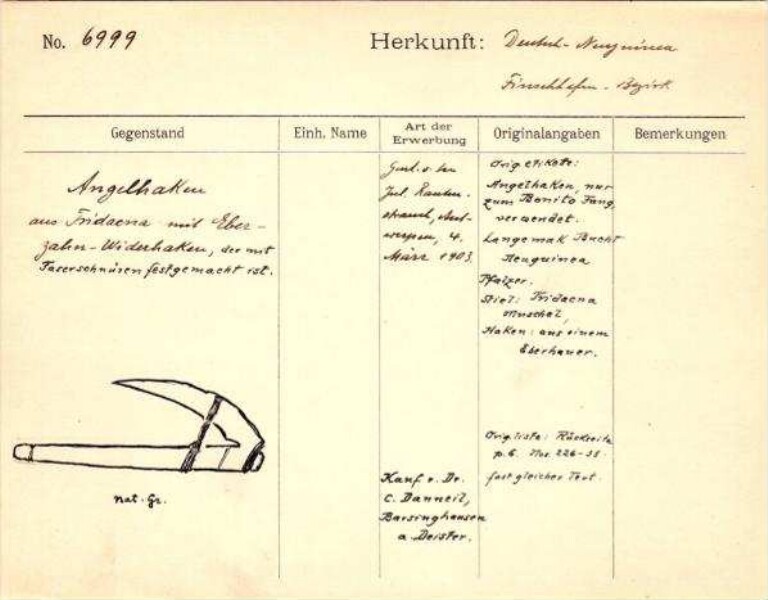 No. 6999
Herkunft: Deutsch-Neuguinea
Finschhafen-Bezirk
Gegenstand
Einh. Name
Art der Erwerbung
Originalangaben
Bemerkungen
Angelhaken
aus Tridacna mit Eber-
zahn-Widerhaken, der mit
Faserschnüren festgemacht ist.
nat. Gr.
Jul. Rauten-
strauch, Ant-
werpen, 4.
März 1903.
Kauf v. Dr.
C. Danneil,
Barsinghausen
a. Deister.
Orig. etikete:
Angelhaken, nur
zum Bonito Fang
verwendet.
Langemak Bucht
Neuguinea
Pfalzer.
Stiel: Tridacna
Muschel,
Haken: aus einem
Eberhauer.
Orig. liste: Rückseite
p. 6. Nos. 226-
fast gleicher Text.